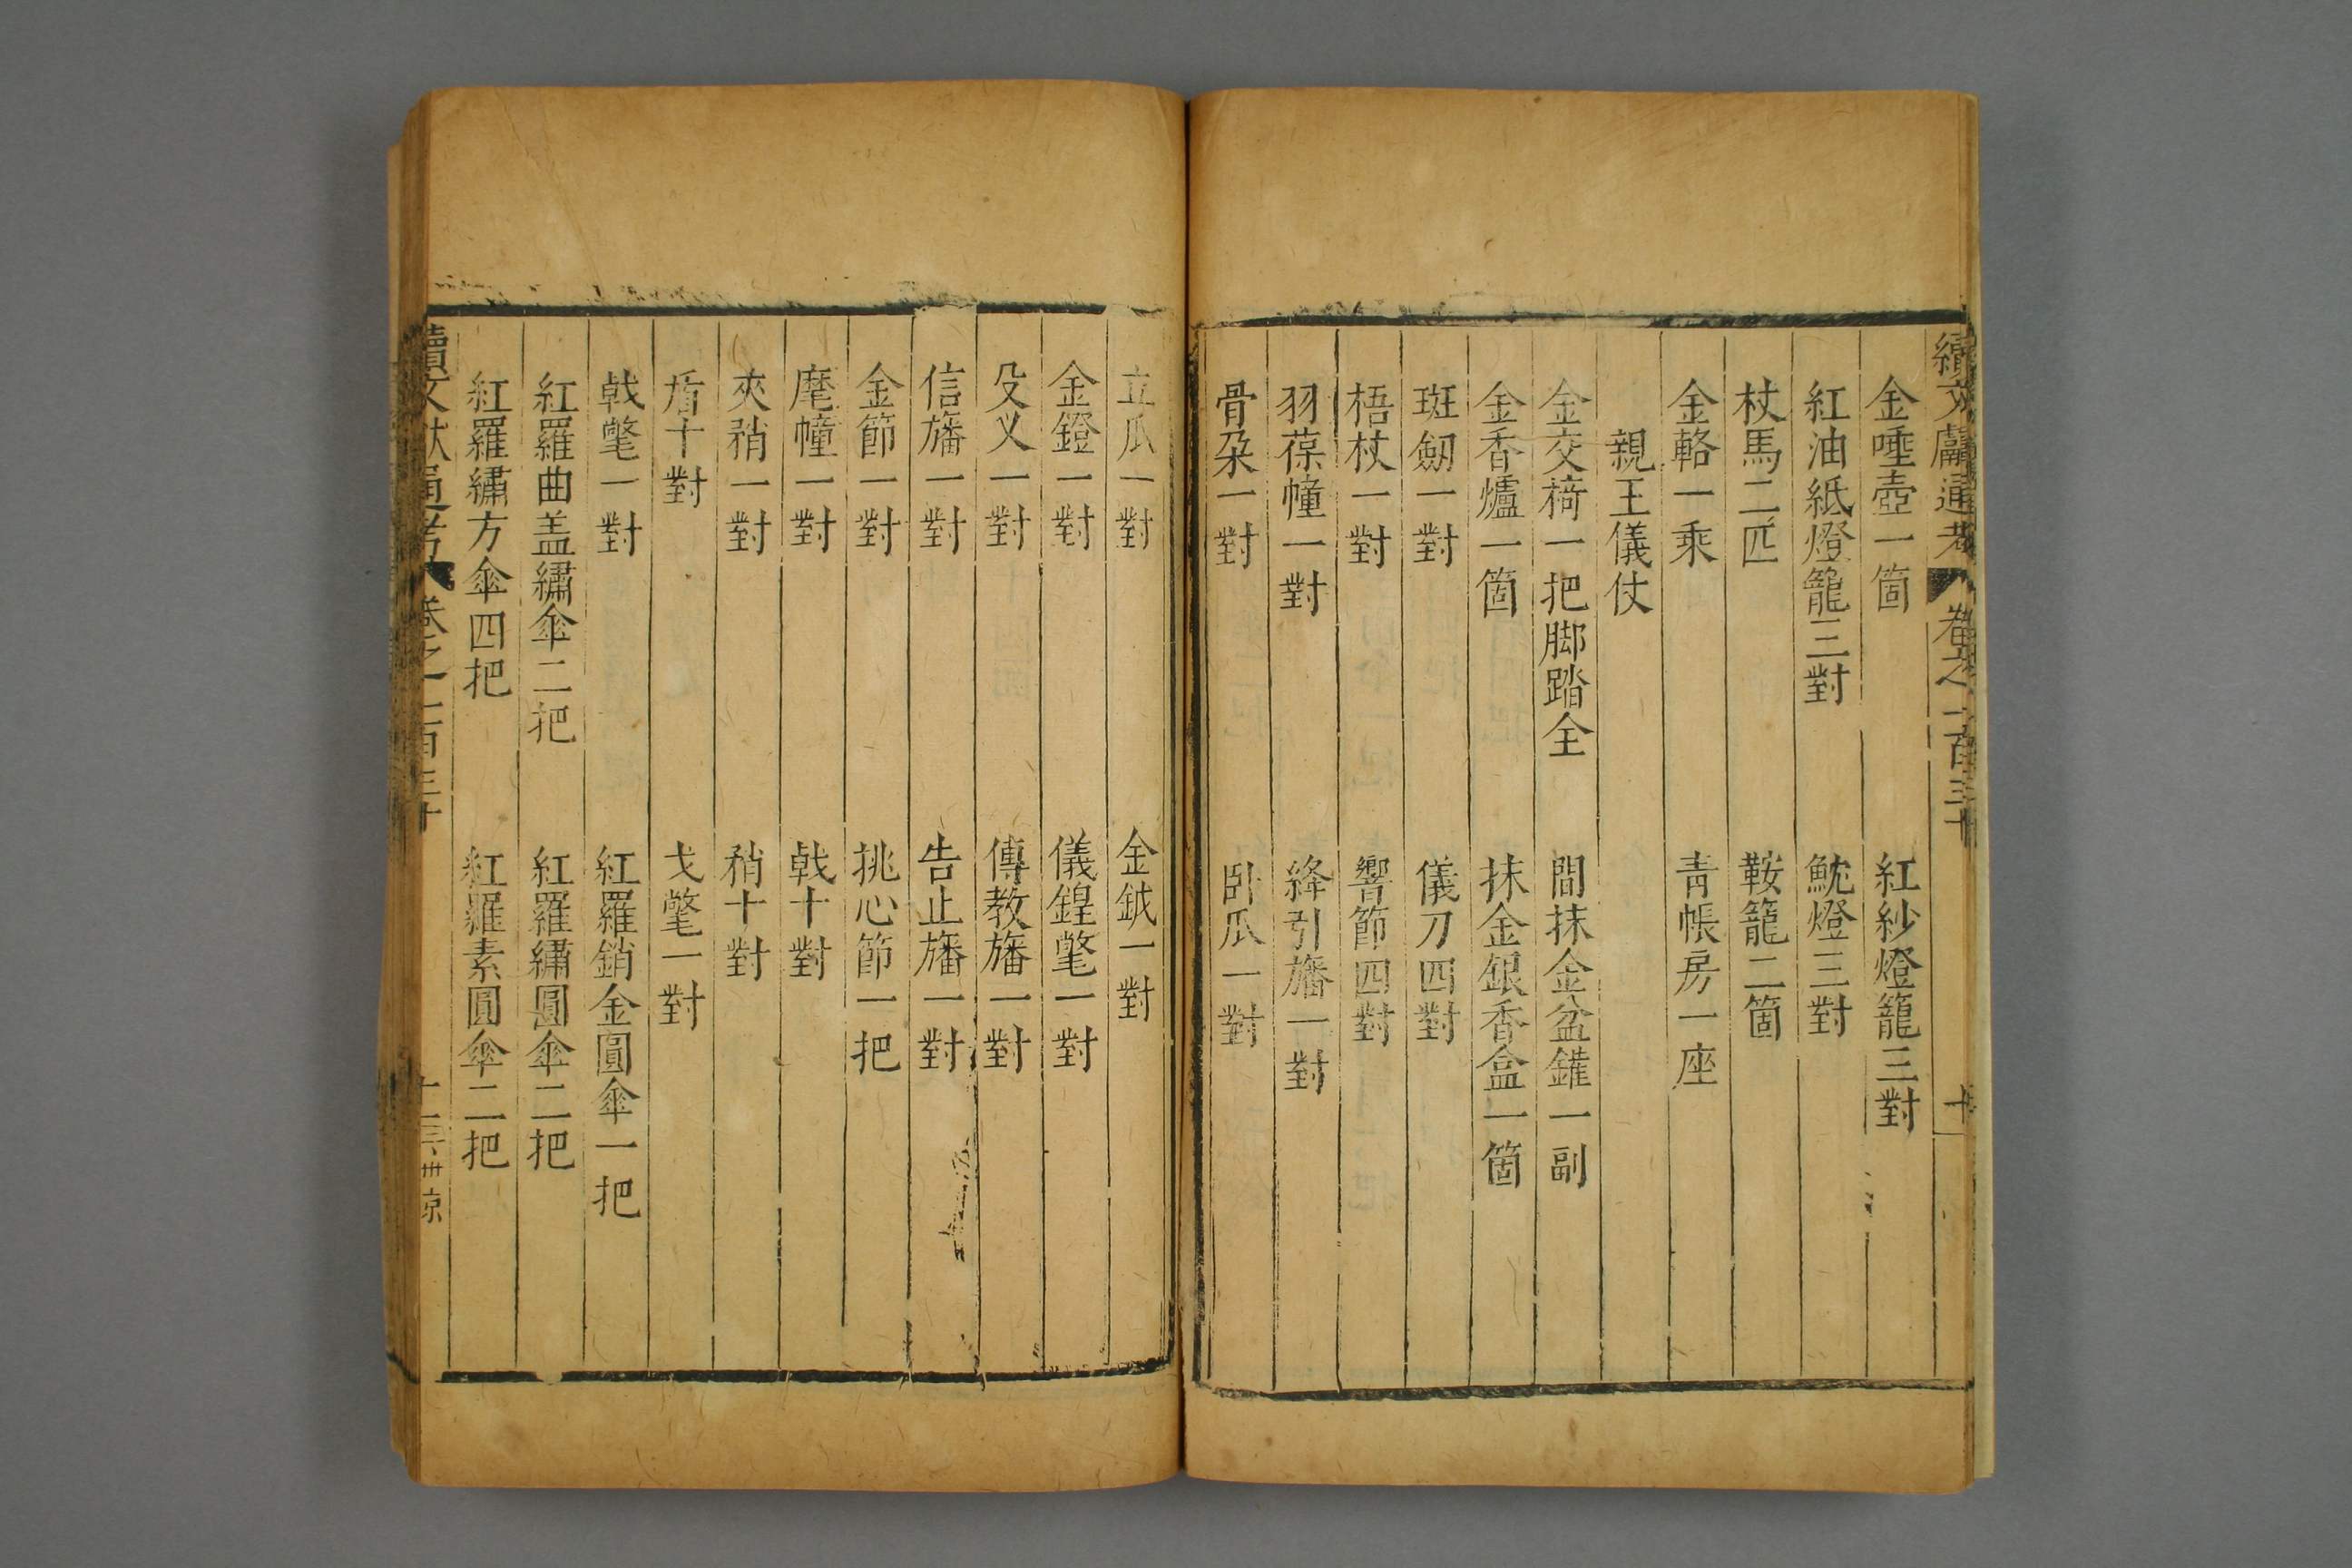 續文獻通考 卷之二百三十
金唾壺一箇 紅紗燈籠三對
紅油紙燈籠三對 魫燈三對
杖馬二匹 鞍籠二箇
金輅一乘 青帳房一座
親王儀仗
金交椅一把脚踏全 間抹金盆鑵一副
金香爐一箇 抹金銀香盒一箇
斑劒一對 儀刀四對
梧杖一對 響節四對
羽葆幢一對 絳引旛一對
骨朶一對 卧瓜一對
立瓜一對 金鉞一對
金鐙一對 儀鍠氅一對
殳义一對 傳教旛一對
信旛一對 告止旛一對
金節一對 挑心節一把
麾幢一對 戟十對
夾矟一對 矟十對
盾十對 戈氅一對
戟氅一對 紅羅銷金圓傘一把
紅羅曲盖繡傘二把 紅羅繡圓傘二把
紅羅繡方傘四把 紅羅素圓傘二把
續文獻通考 卷之二百三十